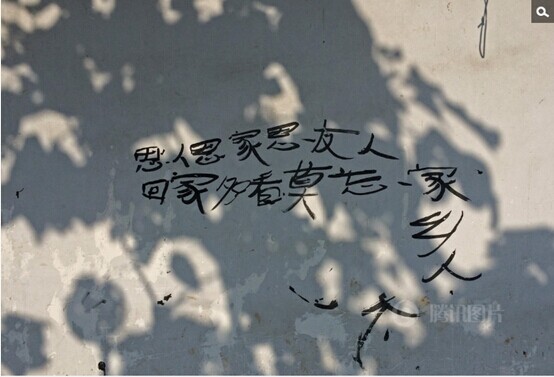 思人思家思友人
回家多看莫忘家
乡
人
腾讯图片